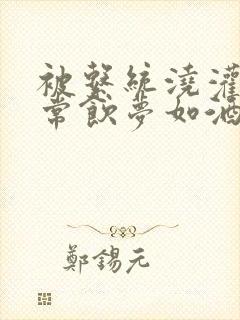 被繫統澆灌
常飲夢如酒
鄭錫元